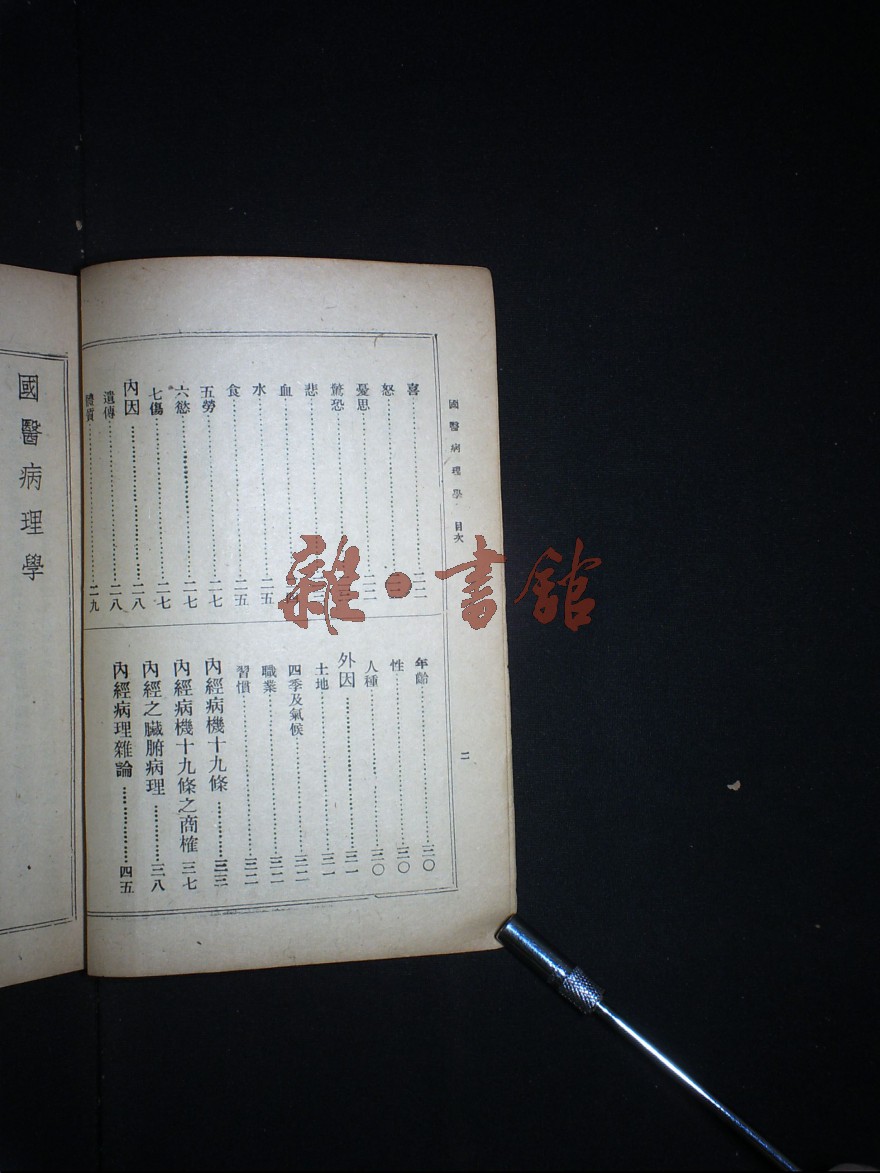 國醫病理學 目次
二
喜 二二
怒
憂思 二二
驚恐
悲
血
水 二五
食 二五
五勞 二七
六慾 二七
七傷 二七
內因 二八
遺傳 二八
體質 二九
年齡 三〇
性 三〇
人種 三〇
外因 三一
土地 三一
四季及氣候 三二
職業 三二
習慣 三二
內經病機十九條 三三
內經病機十九條之商榷 三七
內經之臟腑病理 三八
內經病理雜論 四五
國醫病理學
雜·書館